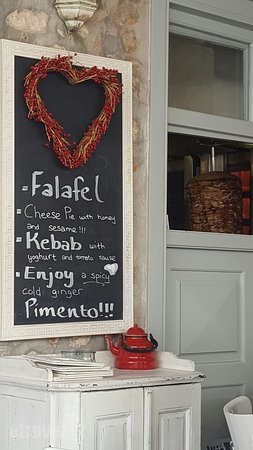 - Falafel
- Cheese Pie with honey
and sesame!!!
- Kebab with
yoghurt and tomato sauce
- Enjoy a spicy
cold ginger
Pimento!!!